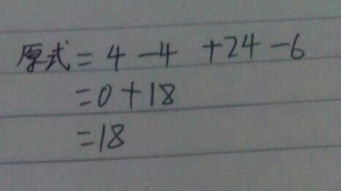 原式=4-4 +24-6
=0+18
=18